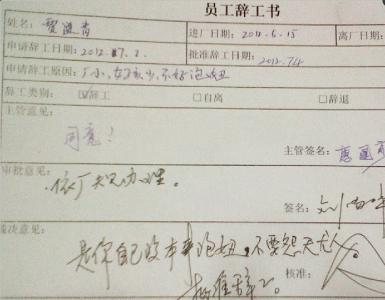 员工辞工书
姓名: 进厂日期: 2011.6.15 离厂日期:
申请辞工日期: 2012.7.1. 批准辞工日期: 2012.7.4
申请辞工原因: 厂小,女孩少,不好泡妞
辞工类别: ☑辞工 □自离 □辞退
主管意见:
同意!
主管签名:
审批意见:
依厂规办理。
签名: 刘
裁决意见:
是你自己没本事泡妞,不要怨天尤人
批准辞工。 核准: